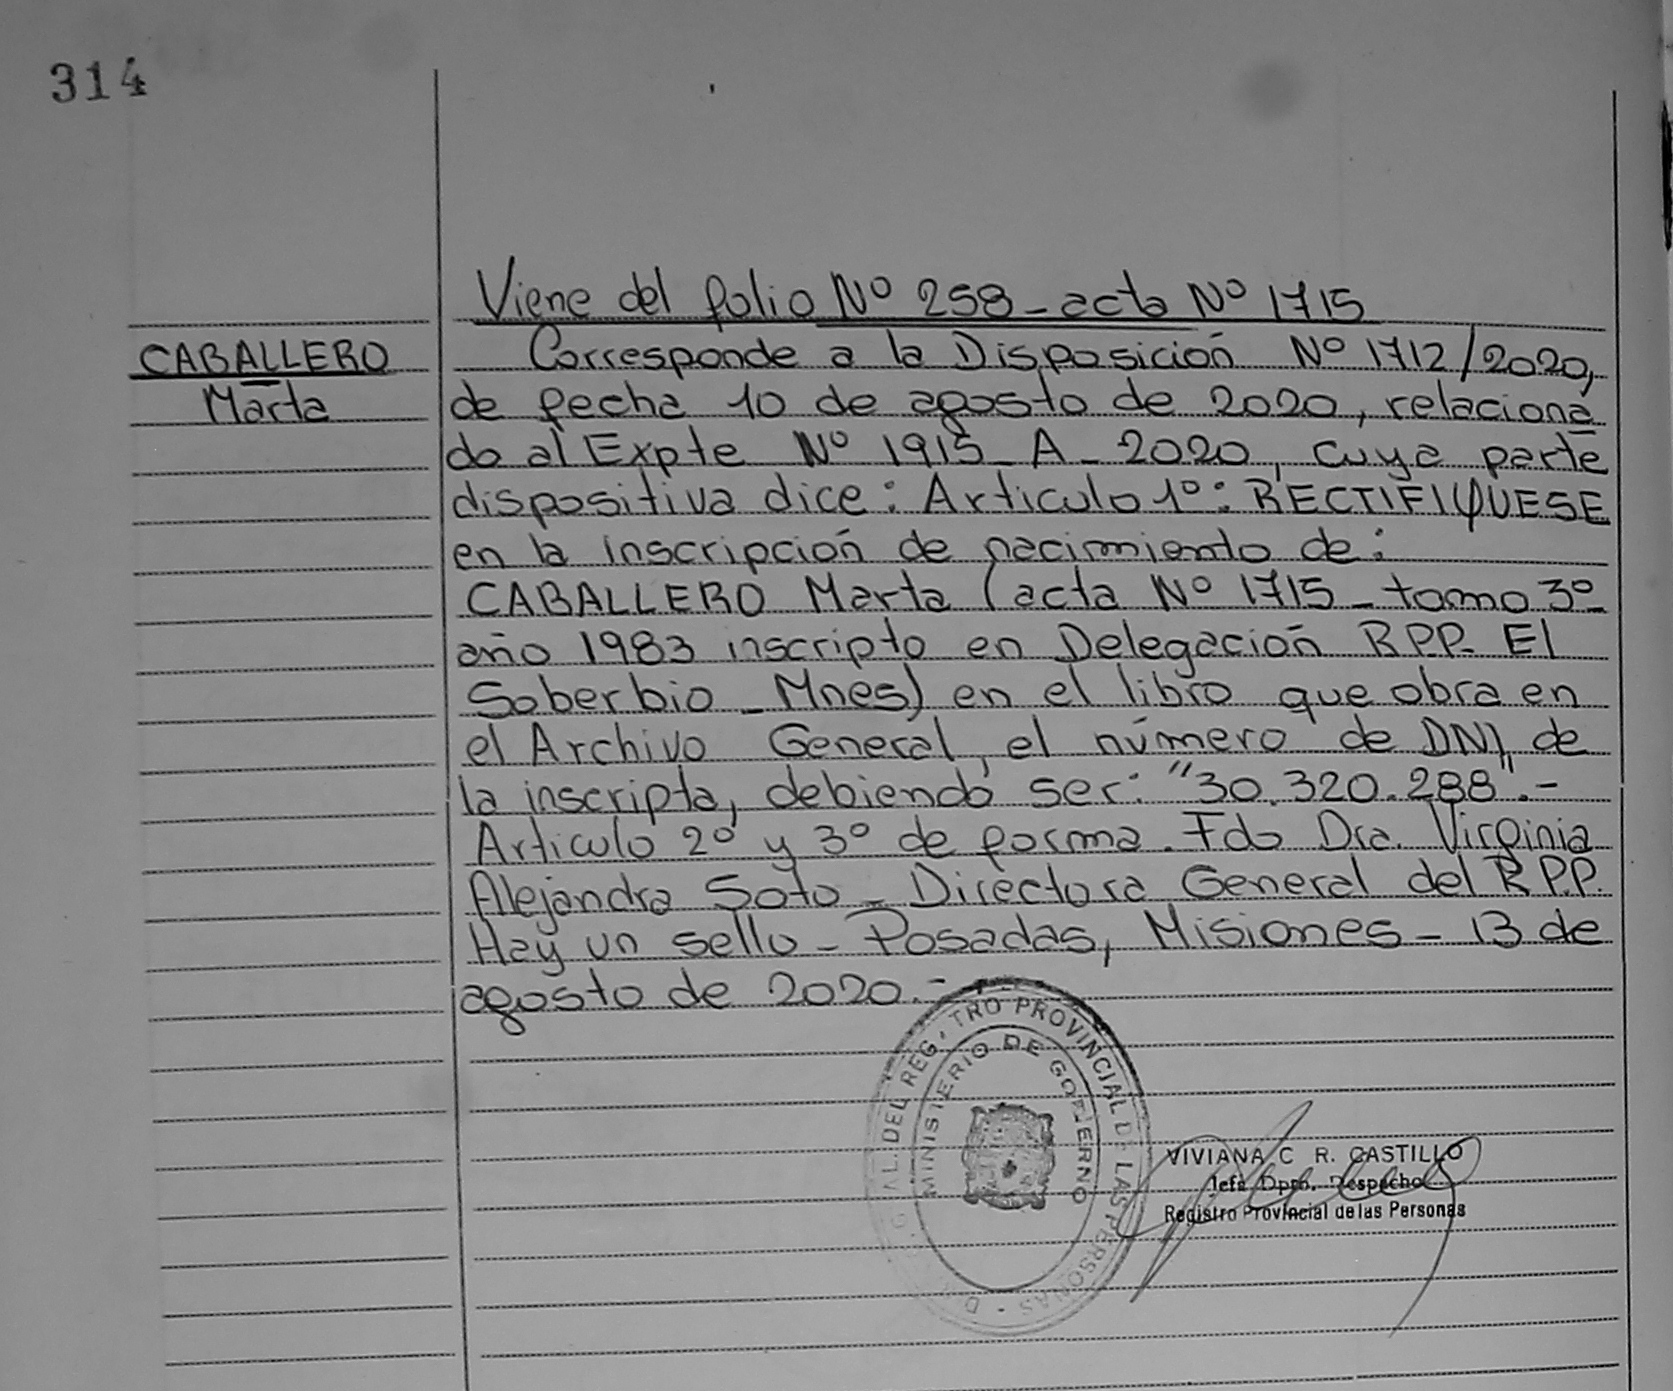 314
Viene del folio Nº 258 - acta Nº 1715
CABALLERO
Marta
Corresponde a la Disposición Nº 1712/2020,
de fecha 10 de agosto de 2020, relaciona
do al Expte Nº 1915 - A - 2020, cuya parte
dispositiva dice: Articulo 1º: RECTIFIQUESE
en la inscripción de nacimiento de:
CABALLERO Marta (acta Nº 1715 - tomo 3º
año 1983 inscripto en Delegación R.P.P. El
Soberbio - Mnes) en el libro que obra en
el Archivo General, el número de DNI de
la inscripta, debiendo ser: "30.320.288".-
Articulo 2º y 3º de forma. Fdo Dra. Virginia
Alejandra Soto - Directora General del R.P.P.
Hay un sello - Posadas, Misiones - 13 de
agosto de 2020.-
AL DEL REG TRO PROVINCIAL DE LAS PERSONAS
MINISTERIO DE GOBIERNO
VIVIANA C R. CASTILLO
Jefa Dpto. Despacho
Registro Provincial de las Personas